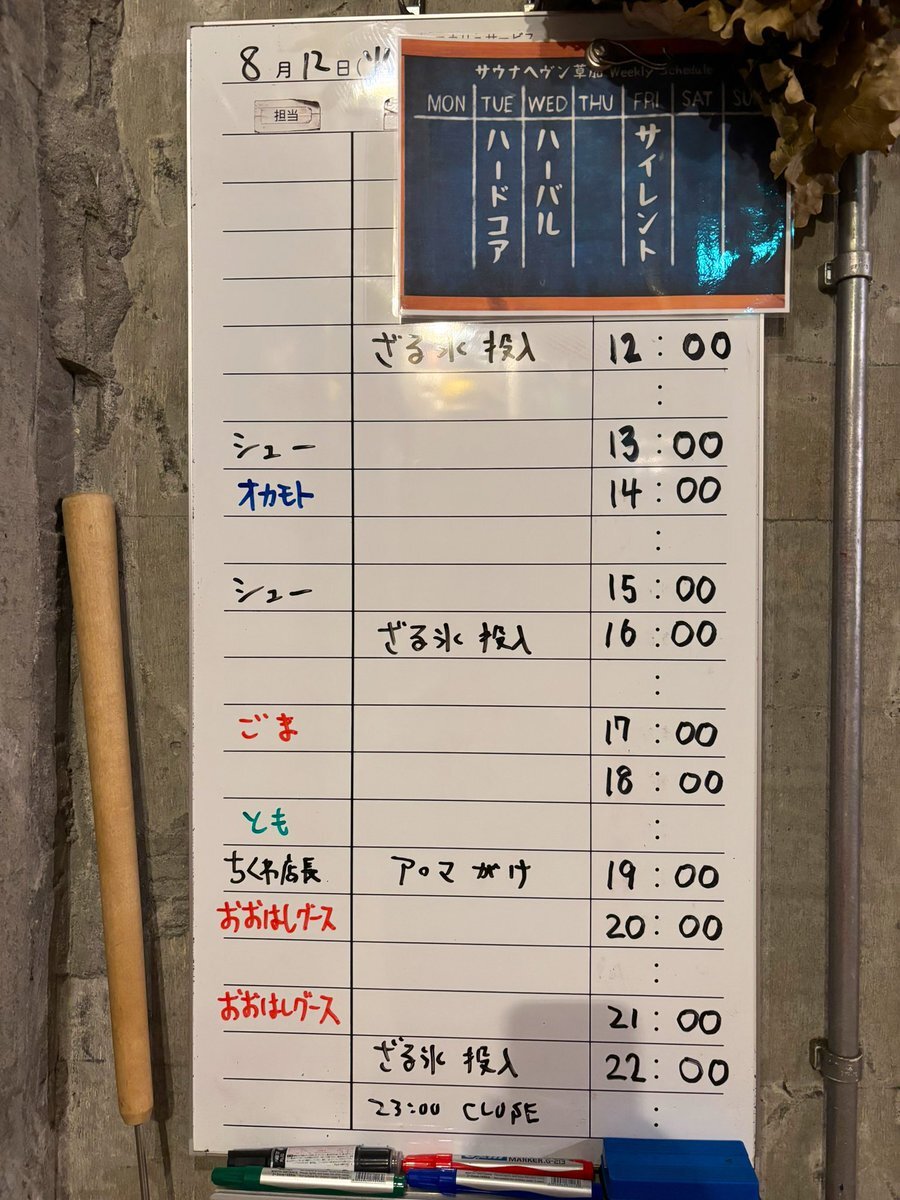 8月12日(火
サウナヘヴン草加 Weekly Schedule
MON TUE WED THU FRI SAT SU
ハードコア
ハーバル
サイレント
担当
ざる氷 投入 12:00
:
シュー 13:00
オカモト 14:00
:
シュー 15:00
ざる氷 投入 16:00
:
ごま 17:00
18:00
とも :
ちくわ店長 アロマがけ 19:00
おおはしグース 20:00
:
おおはしグース 21:00
ざる氷 投入 22:00
23:00 CLOSE :
MARKER